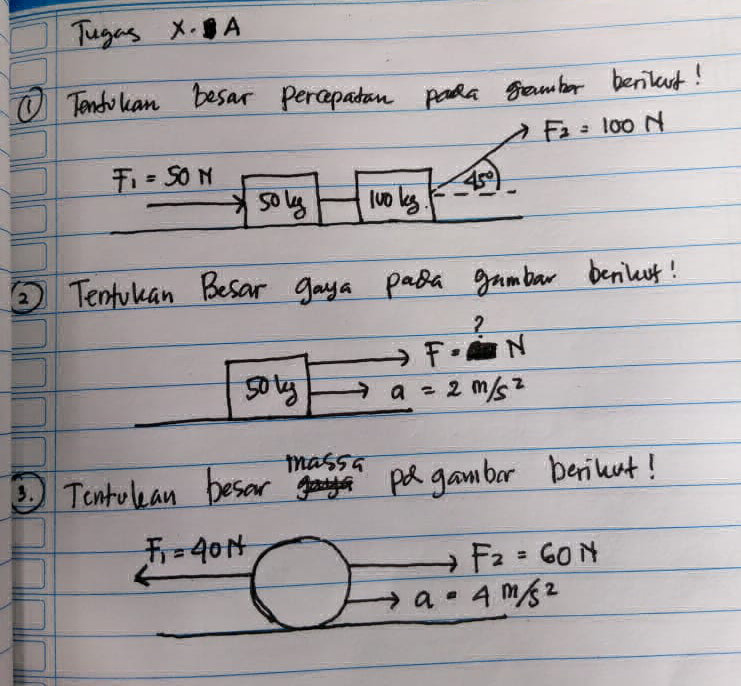 Tugas X. A
① Tentukan besar percepatan pada gambar berikut!
F₂ = 100 N
F₁ = 50 N
50 kg 100 kg 45°
② Tentukan Besar gaya pada gambar berikut!
?
F = N
50 kg a = 2 m/s²
massa
3. Tentukan besar gaya pd gambar berikut!
F₁ = 40 N F₂ = 60 N
a = 4 m/s²